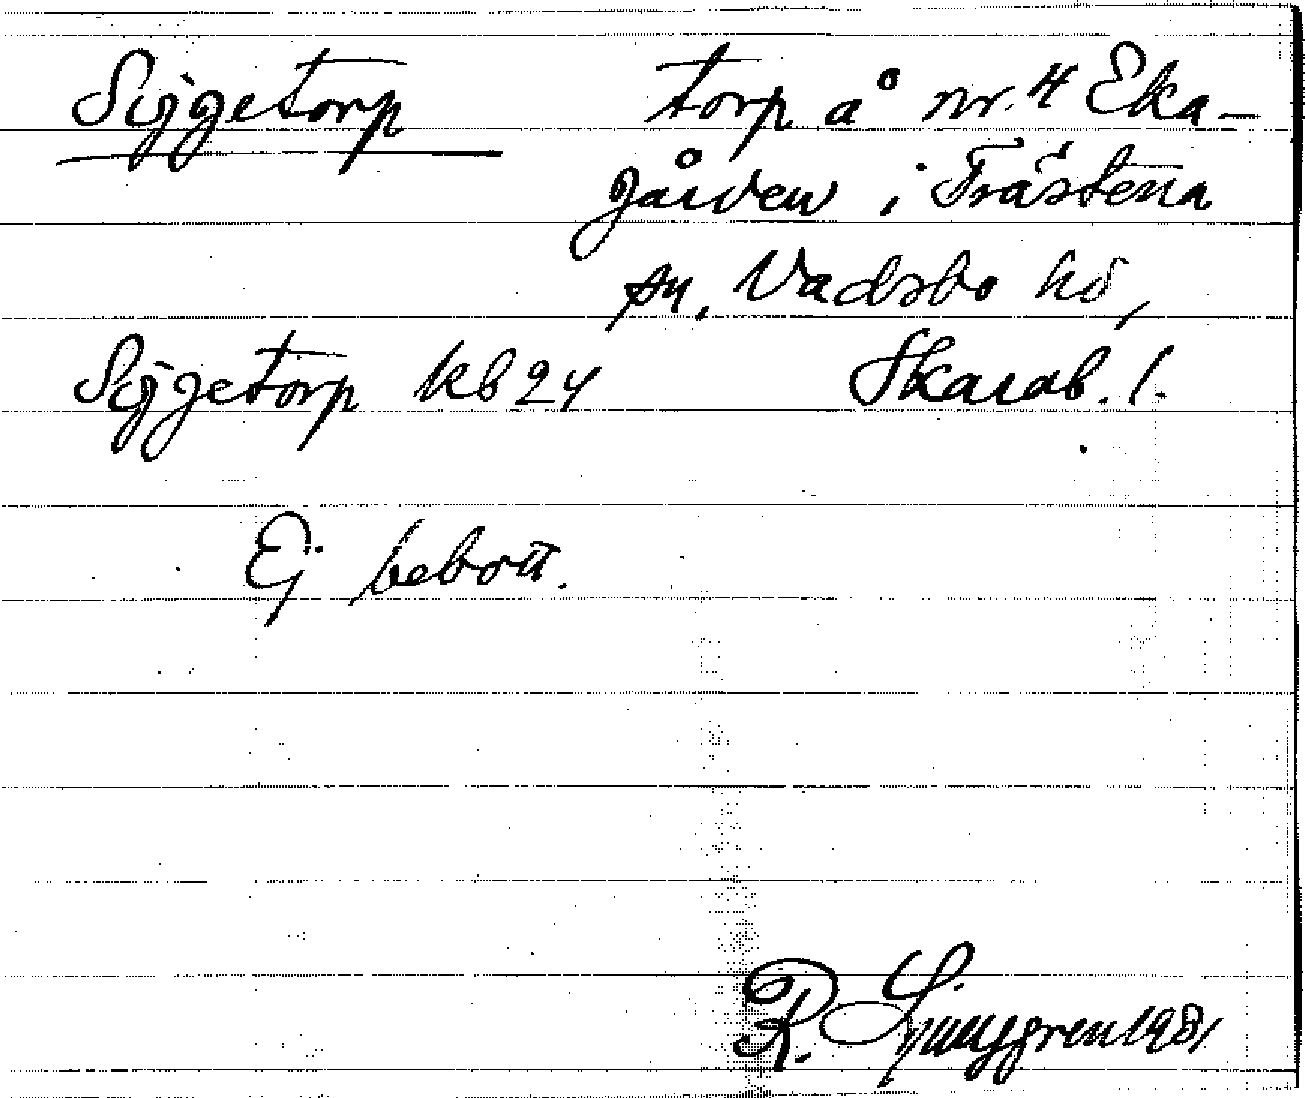 Siggetorp torp å nr. 4 Eka-
gården i Trästena
sn, Vadsbo hd,
Siggetorp kb 24 Skarab. l.
Ej bebott.
R. Ljunggren 1981